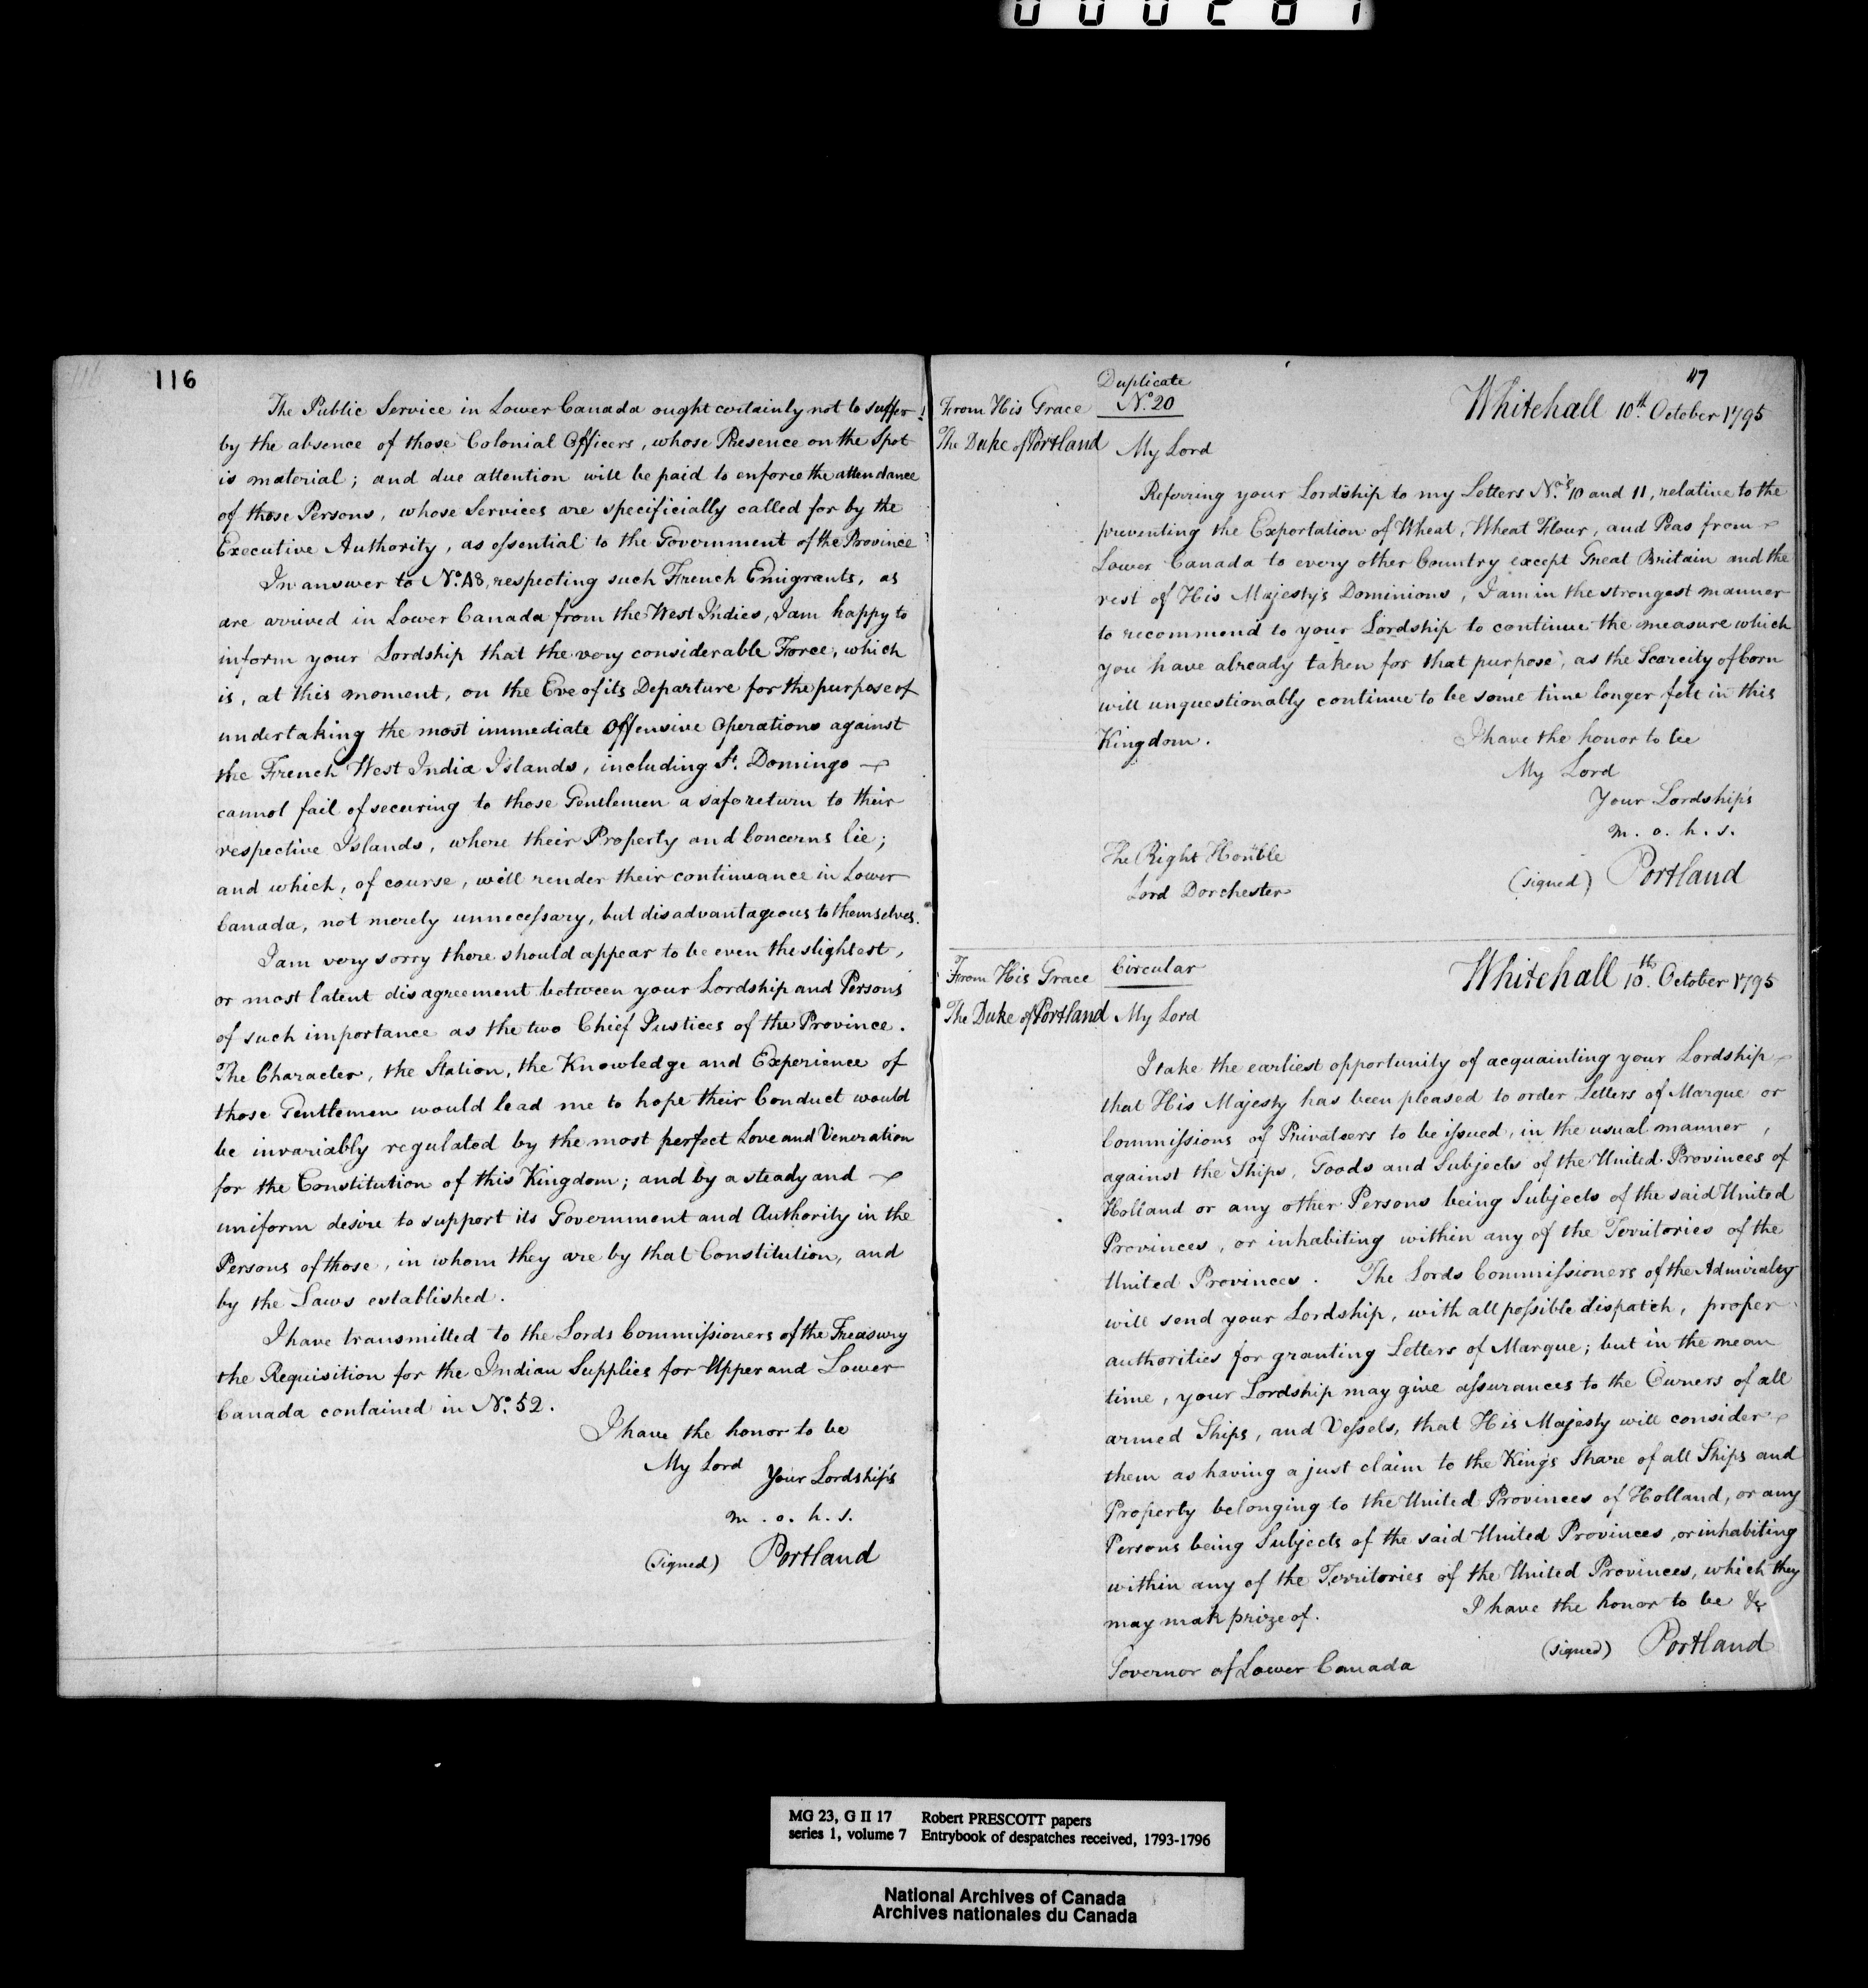 000287
116
The Public Service in Lower Canada ought certainly not to suffer
by the absence of those Colonial Officers, whose Presence on the Spot
is material; and due attention will be paid to enforce the attendance
of those Persons, whose Services are specificially called for by the
Executive Authority, as essential to the Government of the Province
In answer to No. 48, respecting such French Emigrants, as
are arrived in Lower Canada from the West Indies, I am happy to
inform your Lordship that the very considerable Force, which
is, at this moment, on the Eve of its Departure for the purpose of
undertaking the most immediate Offensive Operations against
the French West India Islands, including St. Domingo
cannot fail of securing to those Gentlemen a safe return to their
respective Islands, where their Property and Concerns lie;
and which, of course, will render their continuance in Lower
Canada, not merely unnecessary, but disadvantageous to themselves.
I am very sorry there should appear to be even the slightest,
or most latent disagreement between your Lordship and Persons
of such importance as the two Chief Justices of the Province.
The Character, the Station, the Knowledge and Experience of
those Gentlemen would lead me to hope their Conduct would
be invariably regulated by the most perfect Love and Veneration
for the Constitution of this Kingdom; and by a steady and
uniform desire to support its Government and Authority in the
Persons of those, in whom they are by that Constitution, and
by the Laws established.
I have transmitted to the Lords Commissioners of the Treasury
the Requisition for the Indian Supplies for Upper and Lower
Canada contained in No. 52.
I have the honor to be
My Lord Your Lordship's
m. o. h. s.
(signed) Portland
117
Duplicate
No. 20
From His Grace
The Duke of Portland
Whitehall 10th October 1795
My Lord
Referring your Lordship to my Letters Nos. 10 and 11, relative to the
preventing the Exportation of Wheat, Wheat Flour, and Peas from
Lower Canada to every other Country except Great Britain and the
rest of His Majesty's Dominions, I am in the strongest manner
to recommend to your Lordship to continue the measure which
you have already taken for that purpose, as the Scarcity of Corn
will unquestionably continue to be some time longer felt in this
Kingdom. I have the honor to be
My Lord
Your Lordship's
m. o. h. s.
The Right Honble
Lord Dorchester
(signed) Portland
From His Grace
The Duke of Portland
Circular
Whitehall 10th. October 1795
My Lord
I take the earliest opportunity of acquainting your Lordship
that His Majesty has been pleased to order Letters of Marque or
Commissions of Privateers to be issued, in the usual manner,
against the Ships, Goods and Subjects of the United Provinces of
Holland or any other Persons being Subjects of the said United
Provinces, or inhabiting within any of the Territories of the
United Provinces. The Lords Commissioners of the Admiralty
will send your Lordship, with all possible dispatch, proper
authorities for granting Letters of Marque; but in the mean
time, your Lordship may give assurances to the Owners of all
armed Ships, and Vessels, that His Majesty will consider
them as having a just claim to the King's Share of all Ships and
Property belonging to the United Provinces of Holland, or any
Persons being Subjects of the said United Provinces, or inhabiting
within any of the Territories of the United Provinces, which they
may mak prize of. I have the honor to be &c
(signed) Portland
Governor of Lower Canada
MG 23, G II 17 Robert PRESCOTT papers
series 1, volume 7 Entrybook of despatches received, 1793-1796
National Archives of Canada
Archives nationales du Canada